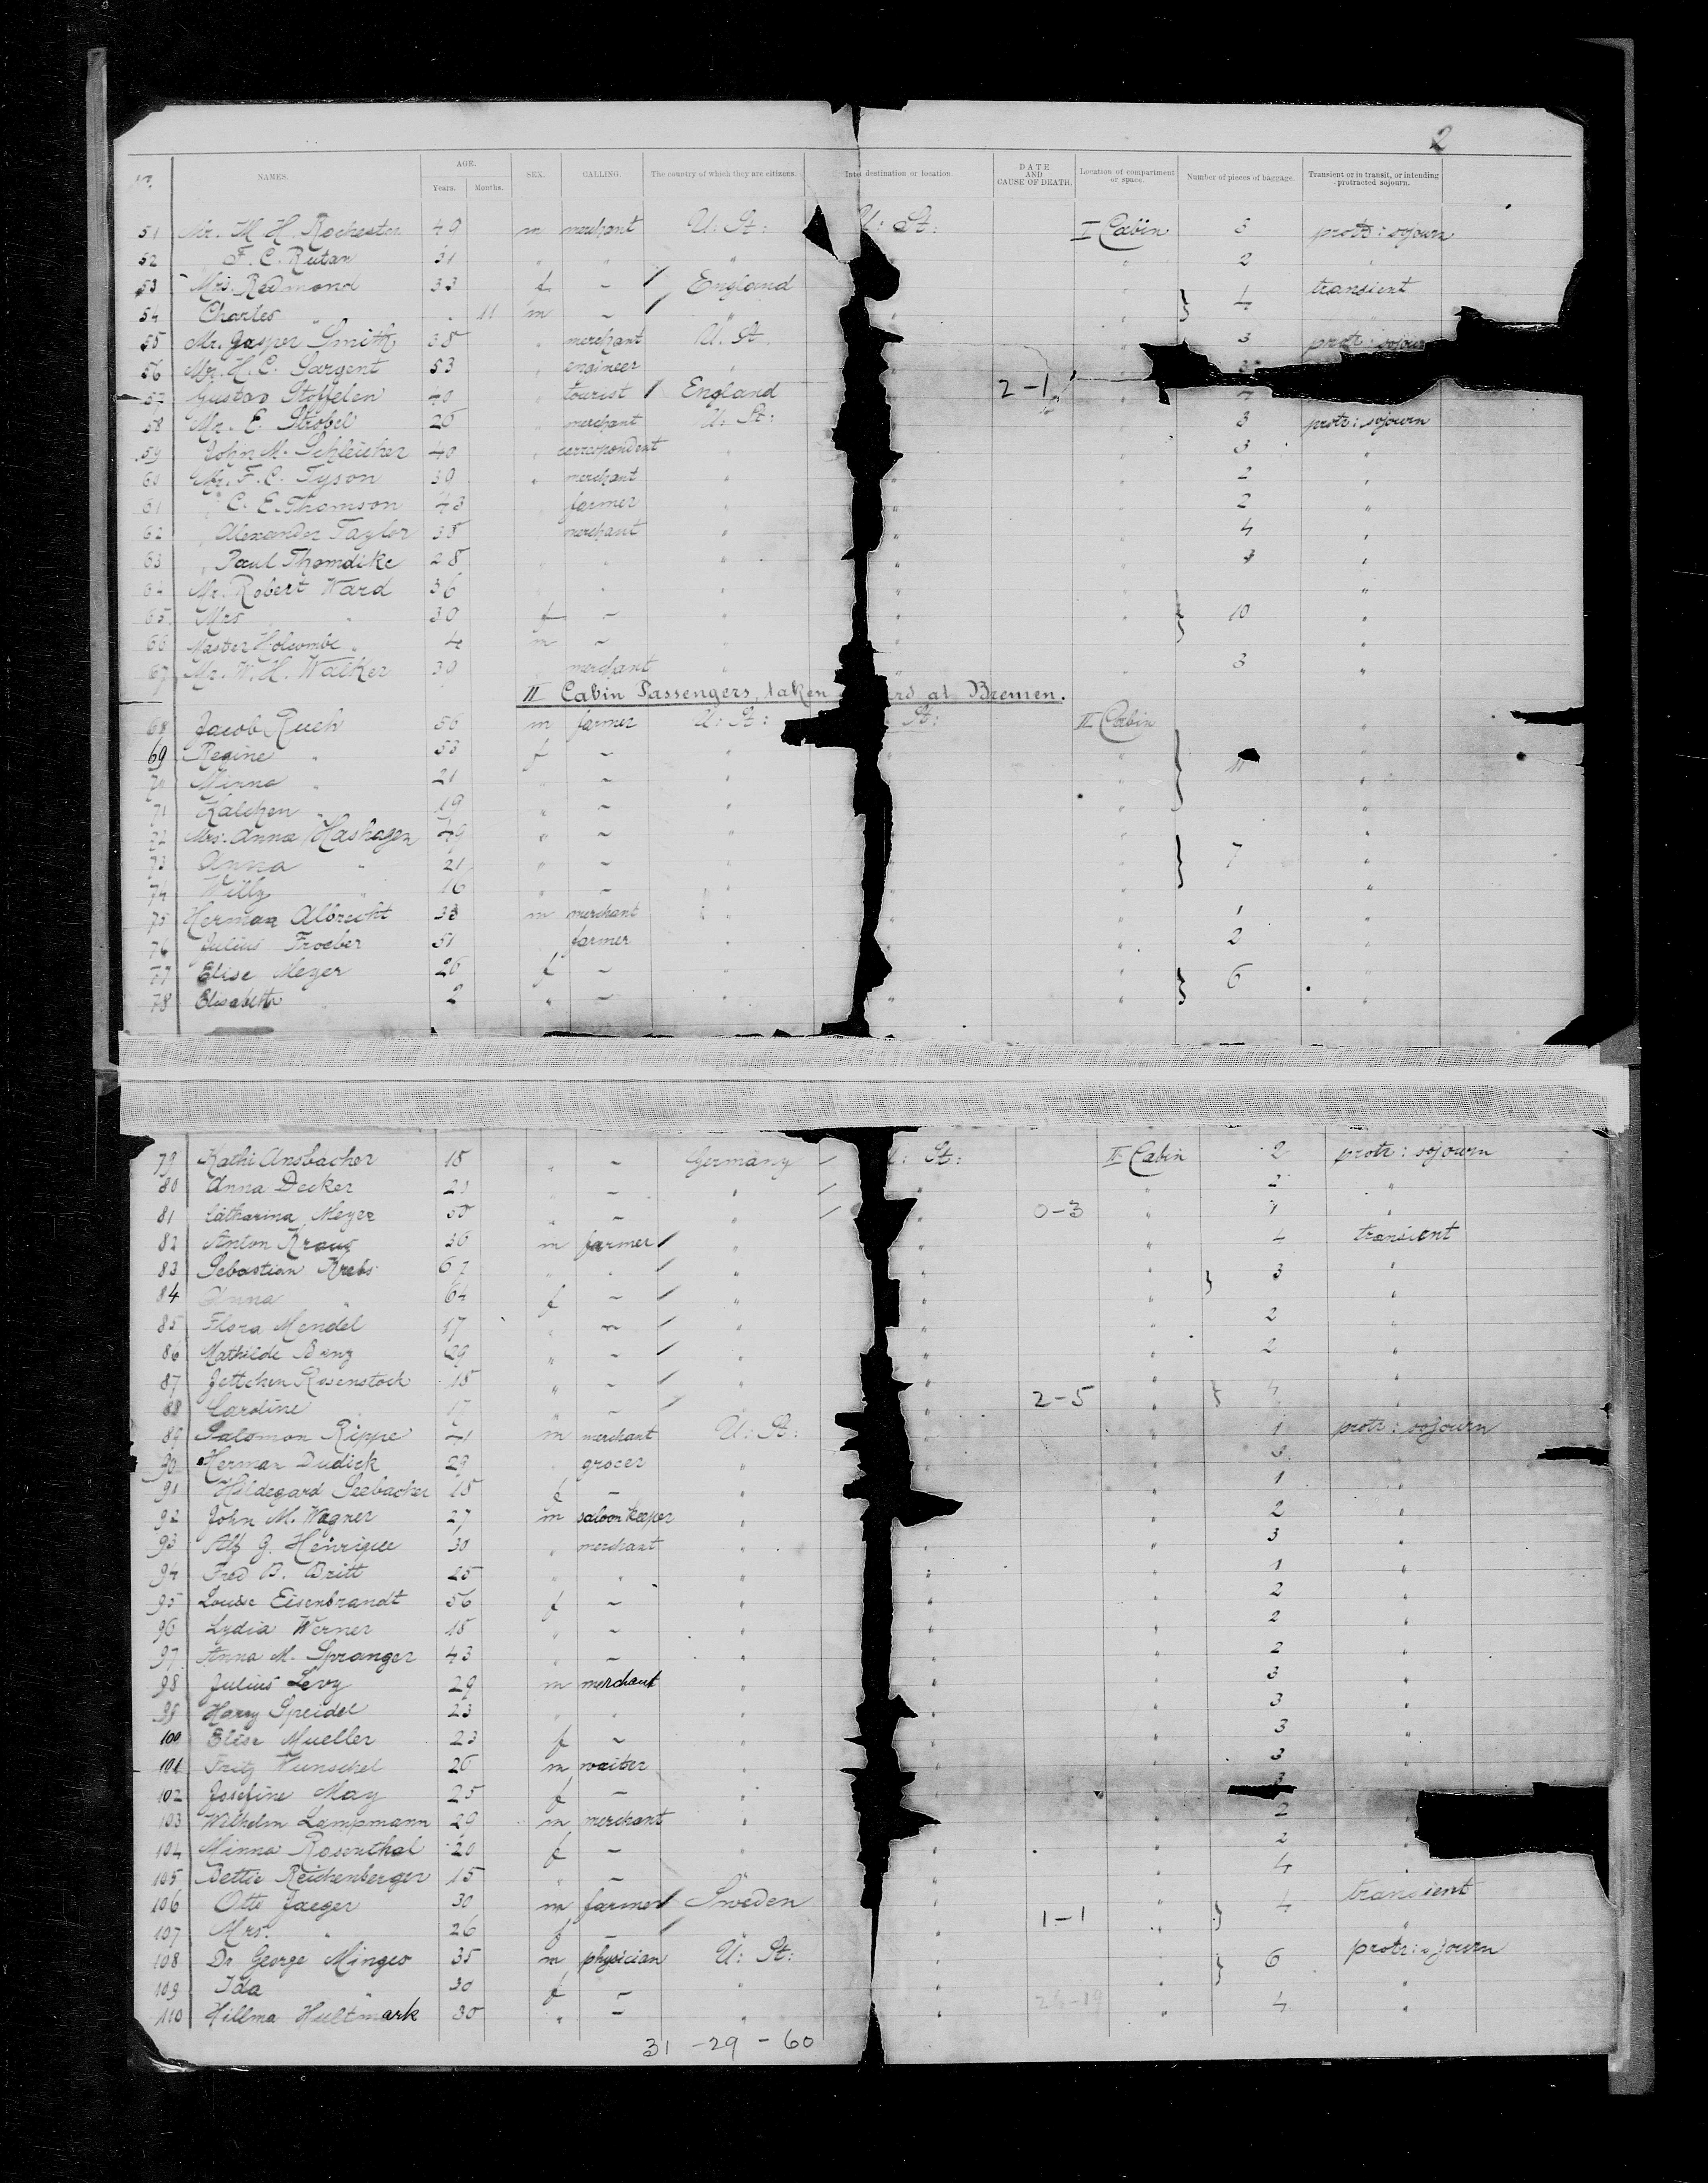 2
No. NAMES. AGE. Years. Months. SEX. CALLING. The country of which they are citizens. Inte destination or location. DATE AND CAUSE OF DEATH. Location of compartment or space. Number of pieces of baggage. Transient or in transit, or intending protracted sojourn.
51 Mr. M. H. Rochester 49 m merchant U: St: U: St: I Cabin 3 protr: sojourn
52 " F. C. Rutan 31 " " " " 2 "
53 Mrs. Redmond 33 f – / England " } 4 transient
54 Charles " 11 m – / " " "
55 Mr. Jasper Smith 38 " merchant U. St. " " 3 protr: sojour
56 Mr. H. C. Sargent 53 " engineer " " " 3
57 Gustav Stoffelen 40 " tourist / England " 2-1 " 4
58 Mr. E. Strobel 25 " merchant U: St: " 3 protr: sojourn
59 John M. Schleicher 40 " correspondent " " " 3 "
60 Mr. F. C. Tyson 39 " merchant " " " 2 "
61 " C. E. Thomson 43 farmer " " " 2 "
62 " Alexander Taylor 38 merchant " " " 4 "
63 " Paul Thorndike 28 " " " " " "
64 Mr. Robert Ward 36 " " " "
65 Mrs " " 30 f – " " " } 10 "
66 Master Holcombe " 4 m – " " "
67 Mr. W. H. Walker 39 merchant " " " 3 "
II Cabin Passengers, taken rd at Bremen.
68 Jacob Ruch 56 m farmer U: St: St: II Cabin "
69 Regine " 53 f – " " } 11 "
70 Minna " 21 " – " " "
71 Kätchen " 19 " – " " "
72 Mrs. Anna Hashagen 49 " – " "
73 Anna " 21 " – " } 7 "
74 Willy " 16 " – " " "
75 Herman Albrecht 33 m merchant " " 1 "
76 Julius Froeber 51 farmer " " 2 "
77 Elise Meyer 26 f – " " } 6 "
78 Elisabeth " 2 " – " " " "
79 Kathi Ansbacher 18 " – Germany / : St: II Cabin 2 protr: sojourn
80 Anna Decker 21 " – " / " " 2 "
81 Catharina Meyer 50 " – " / " 0-3 " 7 "
82 Anton Kraus 36 m farmer / " " " 4 transient
83 Sebastian Krebs 67 " " / " " } 3 "
84 Anna " 64 f – / " " " "
85 Flora Mendel 17 " – / " " 2 "
86 Mathilde Benz 29 " – / " " " 2 "
87 Jettchen Rosenstock 18 " – / " " 2-5 " } 4 "
88 Caroline " 17 " – / " " " "
89 Salomon Rippe 41 m merchant U: St: " 1 protr: sojourn
90 Herman Dudick 29 grocer " " " 3
91 Hildegard Seebacher 18 f – " 1 "
92 John M. Wagner 27 m saloon keeper " " 2 "
93 Alf G. Henrique 30 " merchant " " " 3 "
94 Fred B. Britt 25 " " " " " 1 "
95 Louise Eisenbrandt 56 f – " " " 2 "
96 Lydia Werner 18 " – " " " 2 "
97 Anna M. Spranger 43 " – " " " 2 "
98 Julius Levy 29 m merchant " " " 3 "
99 Harry Speidel 23 " " " " 3 "
100 Elise Mueller 23 f – " " " 3 "
101 Fritz Wunschel 26 m waiter " " " 3 "
102 Josefine May 25 f – " " " 3
103 Wilhelm Lampmann 29 m merchant " " 2 "
104 Minna Rosenthal 20 f – " " " 2 "
105 Bettie Reichenberger 15 " – " " " 4 "
106 Otto Jaeger 30 m farmer / Sweden " " } 4 transient
107 Mrs. " 26 f – / " " 1-1 " "
108 Dr George Minges 35 m physician U: St: " } 6 protr: sojourn
109 Ida " 30 f – " " " "
110 Hillma Hultmark 30 " – " " 26-19 " 4 "
31 - 29 - 60